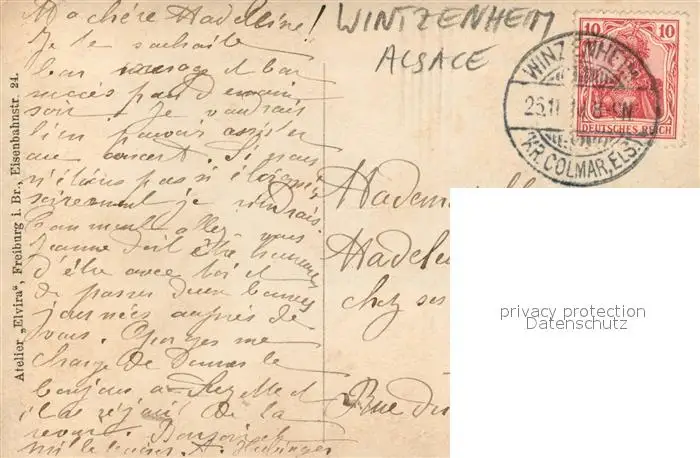 Ma chère Madeleine!
Je te souhaite
bon courage et bon
succès pour demain
soir. Je voudrais
bien pouvoir assister
au concert. Si nous
n'étions pas si éloignés
sûrement je viendrais.
Comment allez-vous
Jeanne doit être heureuse
d'être avec toi et
de passer deux bonnes
journées auprès de
vous. Georges me
charge de donner le
bonjour à Suzette et
il se réjouit de la
revoir. Bonsoir et
mille baisers. A.
WINTZENHEIM
ALSACE
10 10
DEUTSCHES REICH
WINZENHEIM
25.11. 8-9N
KR. COLMAR, ELS.
Mademoi
Madelei
chez ses
Rue du
Atelier „Elvira“, Freiburg i. Br., Eisenbahnstr. 24.
privacy protection
Datenschutz